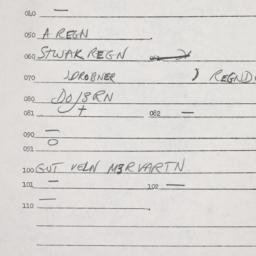 040 —
050 A REGN
060 STWAK REGN
070 ) REGND
080
081 + 082 —
090 —
091 O
100 GUT VELN
101 — 102 —
110 —